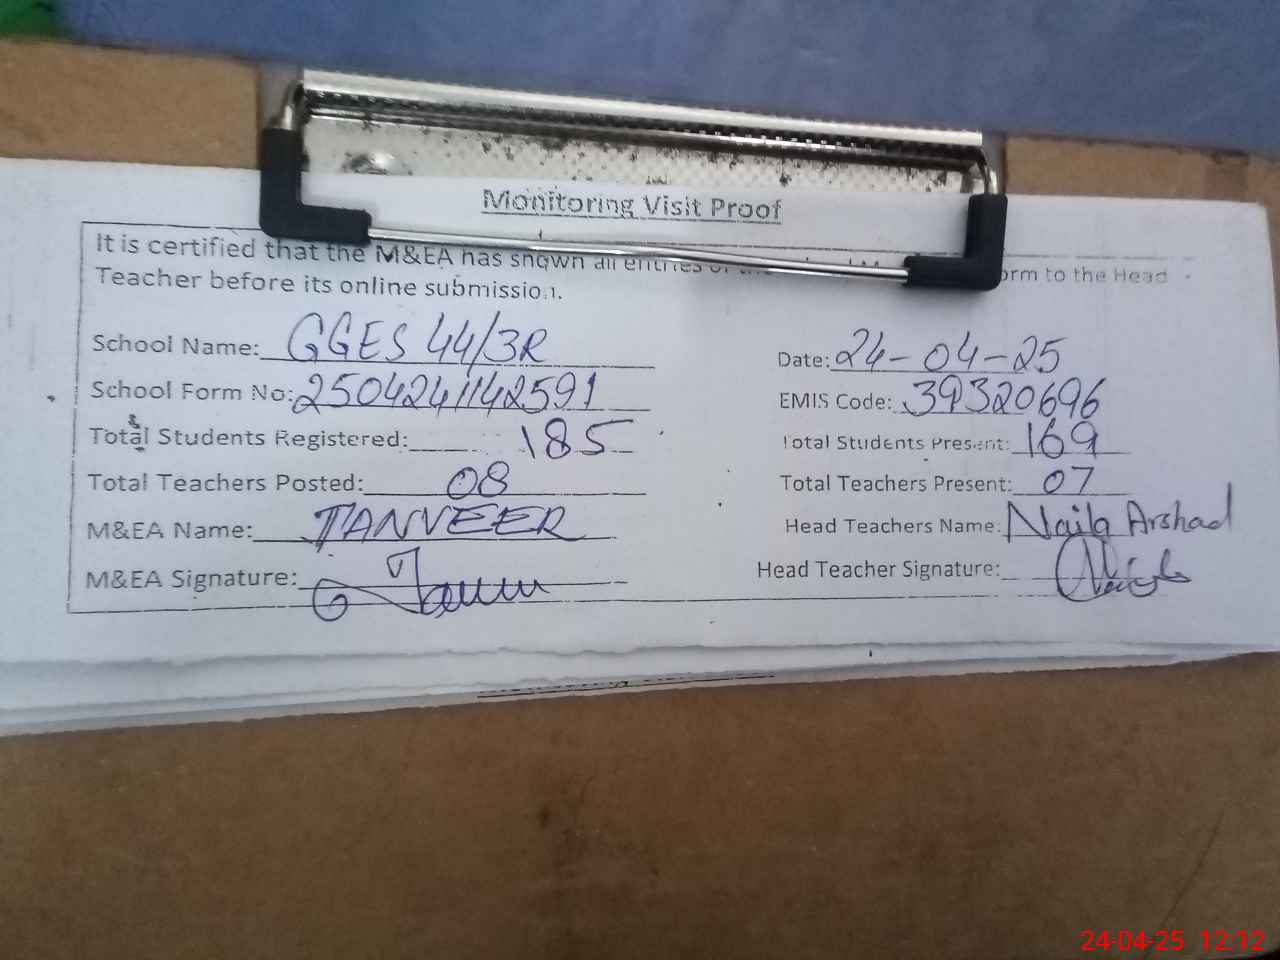 Monitoring Visit Proof
It is certified that the M&EA has shown all entries of the orm to the Head
Teacher before its online submission.
School Name: GGES 44/3R Date: 24-04-25
School Form No: 2504241142591 EMIS Code: 39320696
Total Students Registered: 185 Total Students Present: 169
Total Teachers Posted: 08 Total Teachers Present: 07
M&EA Name: TANVEER Head Teachers Name: Naila Arshad
M&EA Signature: Head Teacher Signature:
24-04-25 12:12